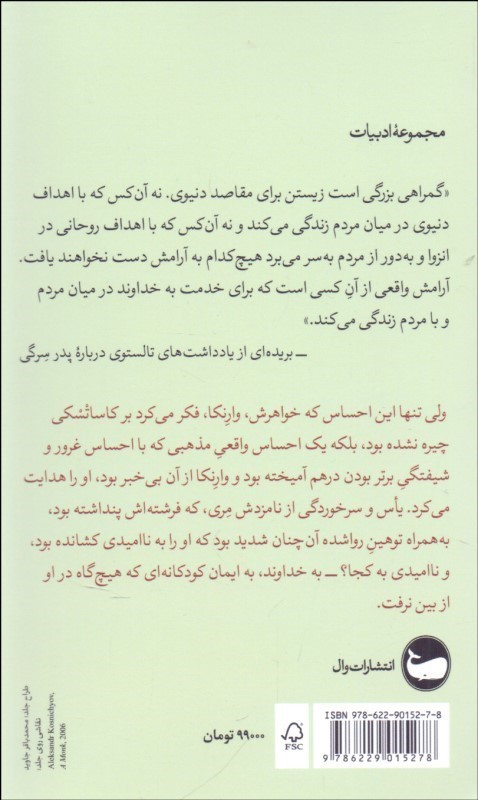 مجموعهٔ ادبیات
«گمراهی بزرگی است زیستن برای مقاصد دنیوی. نه آن‌کس که با اهداف
دنیوی در میان مردم زندگی می‌کند و نه آن‌کس که با اهداف روحانی در
انزوا و به‌دور از مردم به‌سر می‌برد هیچ‌کدام به آرامش دست نخواهند یافت.
آرامش واقعی از آنِ کسی است که برای خدمت به خداوند در میان مردم
و با مردم زندگی می‌کند.»
ــ بریده‌ای از یادداشت‌های تالستوی دربارهٔ پدر سِرگی
ولی تنها این احساس که خواهرش، وارِنکا، فکر می‌کرد بر کاساتْسکی
چیره نشده بود، بلکه یک احساس واقعیِ مذهبی که با احساس غرور و
شیفتگیِ برتر بودن درهم آمیخته بود و وارِنکا از آن بی‌خبر بود، او را هدایت
می‌کرد. یأس و سرخوردگی از نامزدش مِری، که فرشته‌اش پنداشته بود،
به‌همراه توهینِ رواشده آن‌چنان شدید بود که او را به ناامیدی کشانده بود،
و ناامیدی به کجا؟ ــ به خداوند، به ایمان کودکانه‌ای که هیچ‌گاه در او
از بین نرفت.
انتشارات وال
طراح جلد: محمدباقر جاوید
نقاشی روی جلد:
Aleksandr Kosnichyov,
A Monk, 2006
۹۹۰۰۰ تومان
FSC
ISBN 978-622-90152-7-8
9 786229 015278